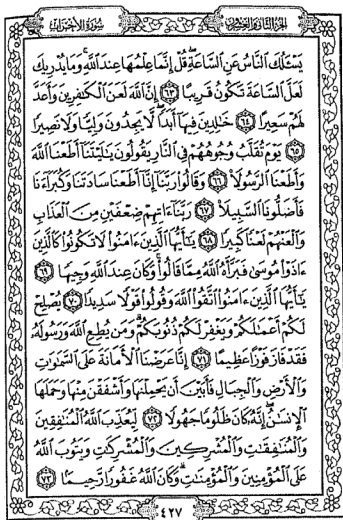 الجزء الثاني والعشرون سورة الأحزاب
يَسْـَٔلُكَ ٱلنَّاسُ عَنِ ٱلسَّاعَةِۖ قُلْ إِنَّمَا عِلْمُهَا عِندَ ٱللَّهِۚ وَمَا يُدْرِيكَ
لَعَلَّ ٱلسَّاعَةَ تَكُونُ قَرِيبًا ٦٣ إِنَّ ٱللَّهَ لَعَنَ ٱلْكَٰفِرِينَ وَأَعَدَّ
لَهُمْ سَعِيرًا ٦٤ خَٰلِدِينَ فِيهَآ أَبَدًاۖ لَّا يَجِدُونَ وَلِيًّا وَلَا نَصِيرًا
٦٥ يَوْمَ تُقَلَّبُ وُجُوهُهُمْ فِى ٱلنَّارِ يَقُولُونَ يَٰلَيْتَنَآ أَطَعْنَا ٱللَّهَ
وَأَطَعْنَا ٱلرَّسُولَا۠ ٦٦ وَقَالُوا۟ رَبَّنَآ إِنَّآ أَطَعْنَا سَادَتَنَا وَكُبَرَآءَنَا
فَأَضَلُّونَا ٱلسَّبِيلَا۠ ٦٧ رَبَّنَآ ءَاتِهِمْ ضِعْفَيْنِ مِنَ ٱلْعَذَابِ
وَٱلْعَنْهُمْ لَعْنًا كَبِيرًا ٦٨ يَٰٓأَيُّهَا ٱلَّذِينَ ءَامَنُوا۟ لَا تَكُونُوا۟ كَٱلَّذِينَ
ءَاذَوْا۟ مُوسَىٰ فَبَرَّأَهُ ٱللَّهُ مِمَّا قَالُوا۟ۚ وَكَانَ عِندَ ٱللَّهِ وَجِيهًا ٦٩
يَٰٓأَيُّهَا ٱلَّذِينَ ءَامَنُوا۟ ٱتَّقُوا۟ ٱللَّهَ وَقُولُوا۟ قَوْلًا سَدِيدًا ٧٠ يُصْلِحْ
لَكُمْ أَعْمَٰلَكُمْ وَيَغْفِرْ لَكُمْ ذُنُوبَكُمْۗ وَمَن يُطِعِ ٱللَّهَ وَرَسُولَهُۥ
فَقَدْ فَازَ فَوْزًا عَظِيمًا ٧١ إِنَّا عَرَضْنَا ٱلْأَمَانَةَ عَلَى ٱلسَّمَٰوَٰتِ
وَٱلْأَرْضِ وَٱلْجِبَالِ فَأَبَيْنَ أَن يَحْمِلْنَهَا وَأَشْفَقْنَ مِنْهَا وَحَمَلَهَا
ٱلْإِنسَٰنُۖ إِنَّهُۥ كَانَ ظَلُومًا جَهُولًا ٧٢ لِّيُعَذِّبَ ٱللَّهُ ٱلْمُنَٰفِقِينَ
وَٱلْمُنَٰفِقَٰتِ وَٱلْمُشْرِكِينَ وَٱلْمُشْرِكَٰتِ وَيَتُوبَ ٱللَّهُ
عَلَى ٱلْمُؤْمِنِينَ وَٱلْمُؤْمِنَٰتِۗ وَكَانَ ٱللَّهُ غَفُورًا رَّحِيمًۢا ٧٣
٤٢٧